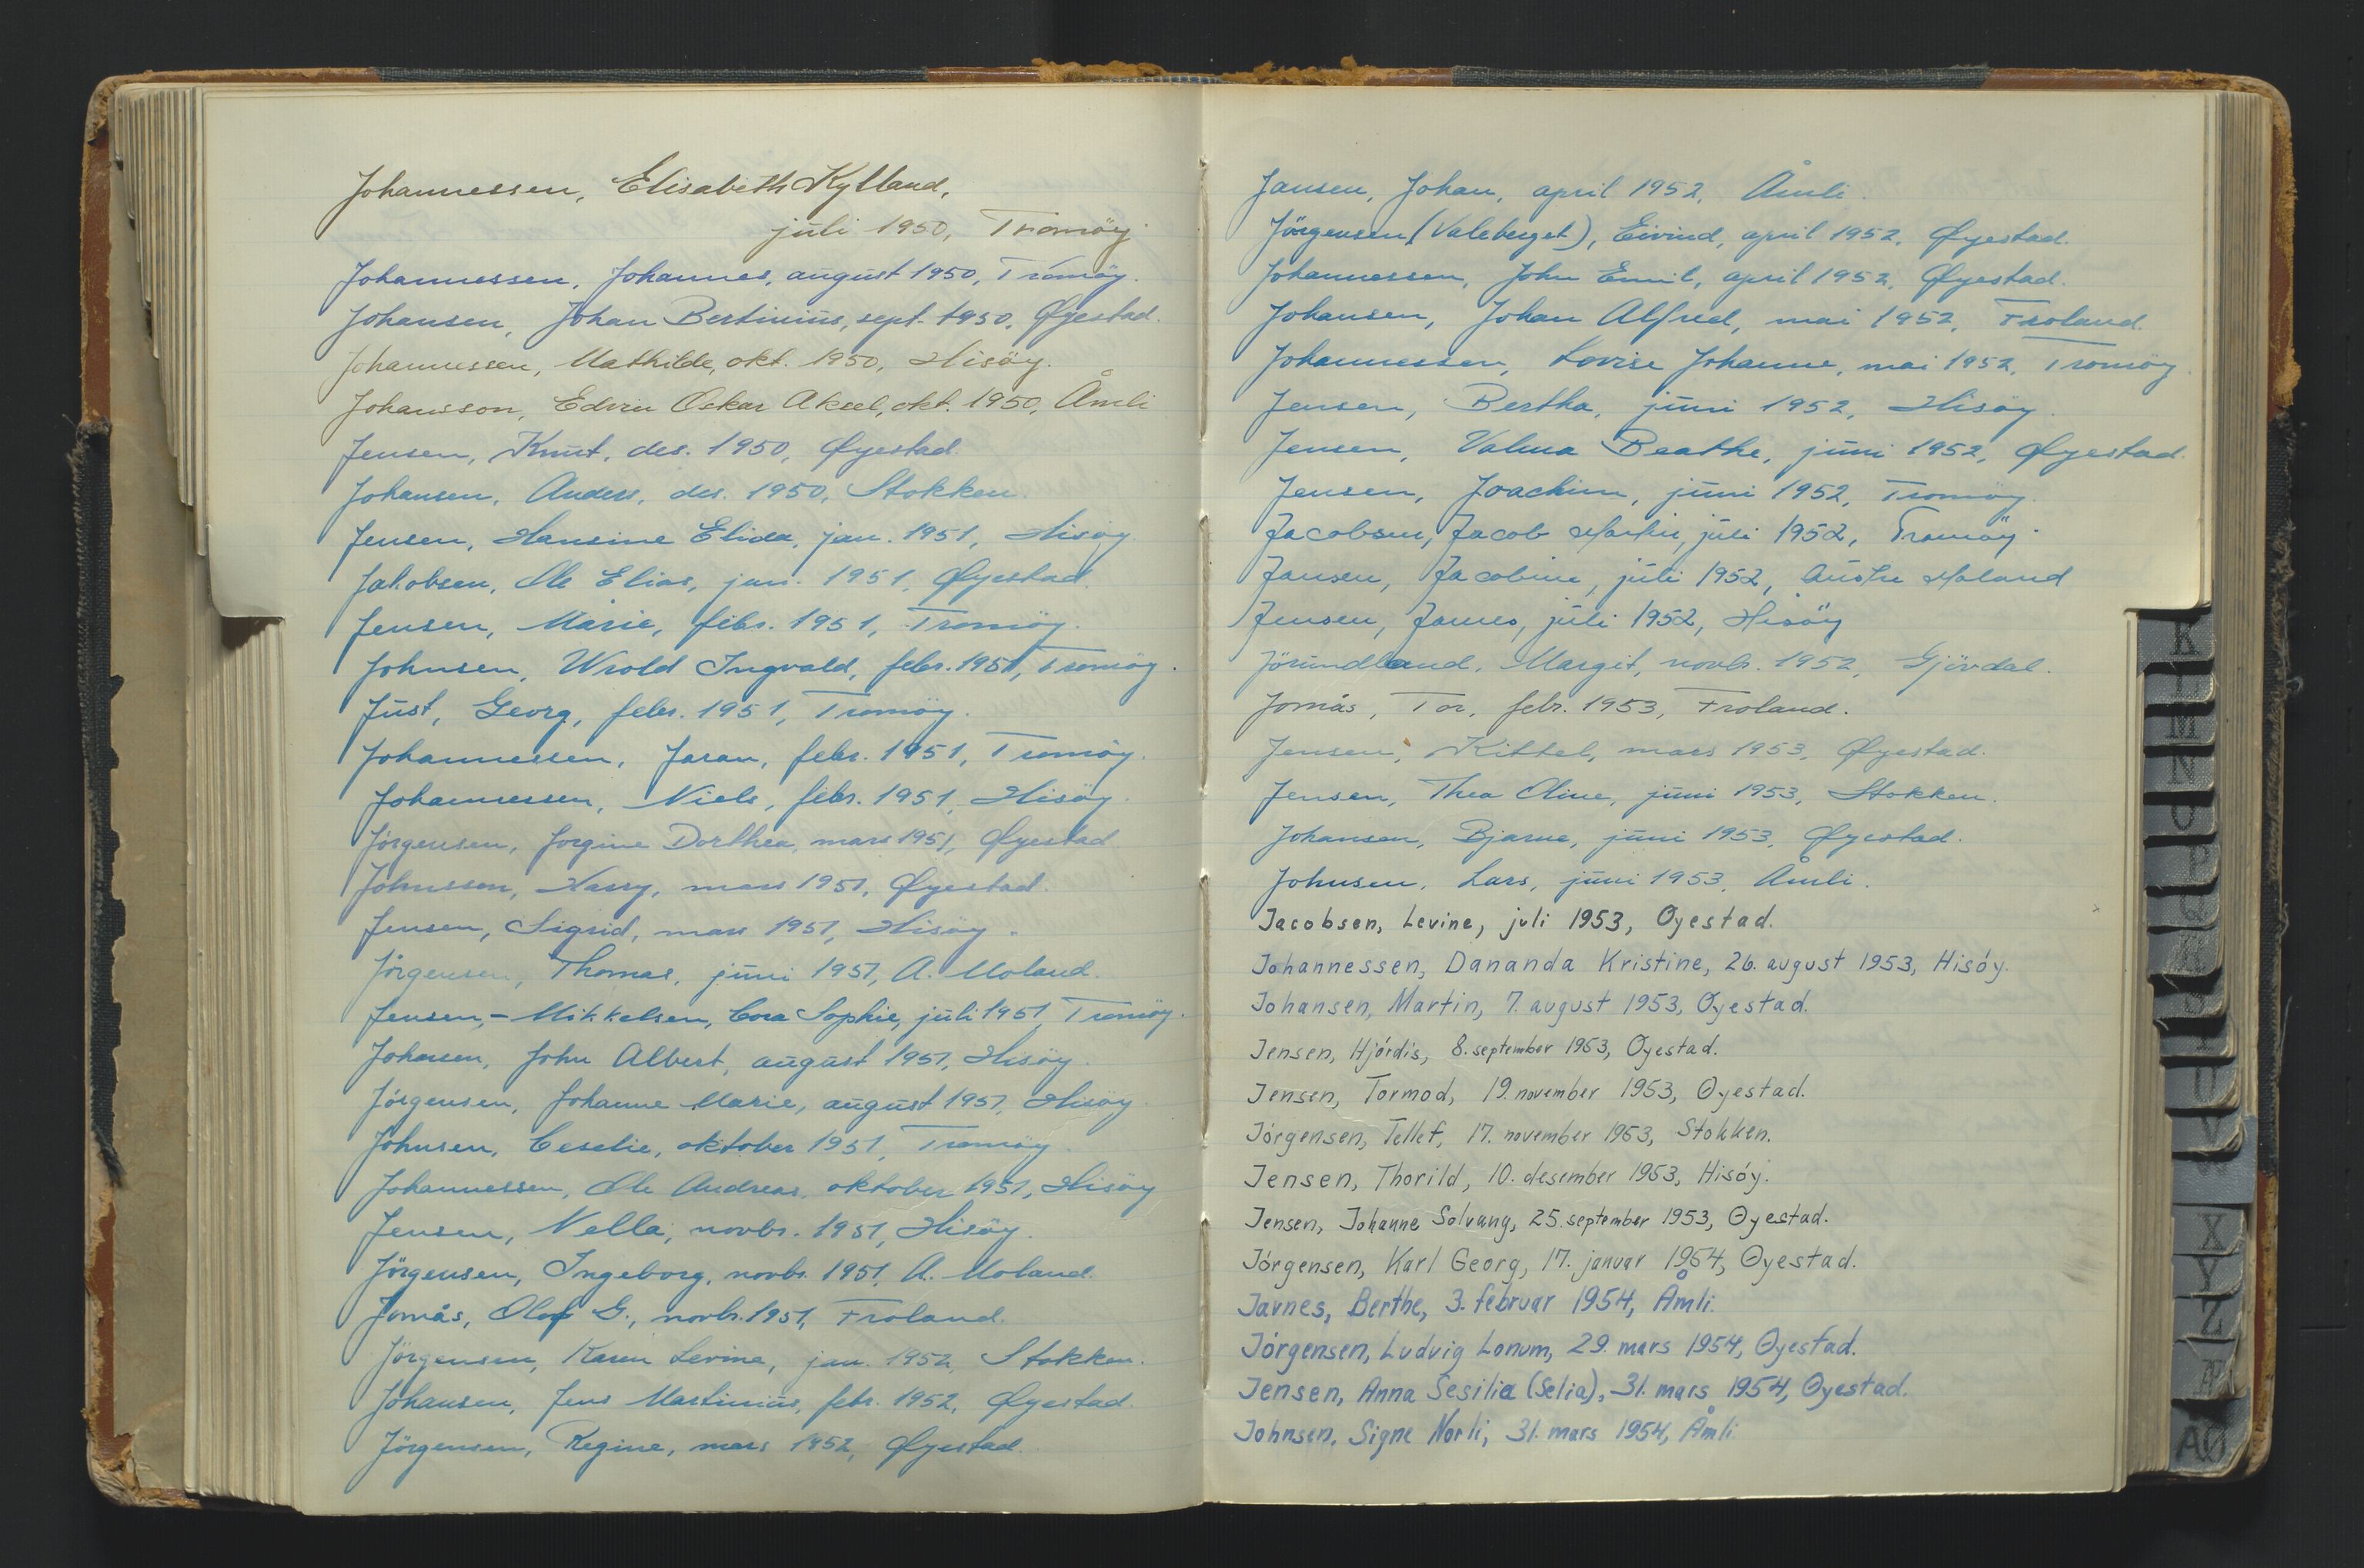 Johannessen, Elisabeth Kylland,
juli 1950, Tromöy
Johannessen, Johannes, august 1950, Tromöy.
Johansen, Johan Bertinius, sept. 1950, Øyestad.
Johannessen, Mathilde, okt. 1950, Hisöy.
Johansson, Edvin Oskar Aksel, okt. 1950, Åmli
Jensen, Knut, des. 1950, Øyestad.
Johansen, Anders, des. 1950, Stokken.
Jensen, Hansine Elida, jan. 1951, Hisöy.
Jakobsen, Ole Elias, jan. 1951, Øyestad.
Jensen, Marie, febr. 1951, Tromöy.
Johnsen, Wrold Ingvald, febr. 1951, Tromöy.
Just, Georg, febr. 1951, Tromöy.
Johannessen, Jaran, febr. 1951, Tromöy.
Johannessen, Niels, febr. 1951, Hisöy.
Jörgensen, Jorgine Dorthea, mars 1951, Øyestad
Johnssen, Harry, mars 1951, Øyestad.
Jensen, Sigrid, mars 1951, Hisöy.
Jörgensen, Thomas, juni 1951, A. Moland.
Jensen,-Mikkelsen, Cora Sophie, juli 1951, Tromöy.
Johansen, John Albert, august 1951, Hisöy.
Jörgensen, Johanne Marie, august 1951, Hisöy
Johnsen, Ceselie, oktober 1951, Tromöy
Johannessen, Ole Andreas, oktober 1951, Hisöy
Jensen, Nella, novbr. 1951, Hisöy.
Jörgensen, Ingeborg, novbr. 1951, A. Moland.
Jomås, Olof G., novbr. 1951, Froland.
Jörgensen, Karen Levine, jan. 1952, Stokken.
Johansen, Jens Martinius, febr. 1952, Øyestad.
Jörgensen, Regine, mars 1952, Øyestad.
Jansen, Johan, april 1952, Åmli.
Jörgensen (Valeberget), Eivind, april 1952, Øyestad.
Johannessen, John Emil, april 1952, Øyestad.
Johansen, Johan Alfred, mai 1952, Froland.
Johannessen, Lovise Johanne, mai 1952, Tromöy.
Jensen, Bertha, juni 1952, Hisöy.
Jensen, Valma Beathe, juni 1952, Øyestad.
Jensen, Joachim, juni 1952, Tromöy.
Jacobsen, Jacob Martin, juli 1952, Tromöy.
Jansen, Jacobine, juli 1952, Austre Moland
Jensen, James, juli 1952, Hisöy
Jörundland, Margit, novbr. 1952, Gjövdal.
Jomås, Tor, febr. 1953, Froland.
Jensen, Kittel, mars 1953, Øyestad.
Jensen, Thea Oline, juni 1953, Stokken.
Johansen, Bjarne, juni 1953, Øyestad.
Johnsen, Lars, juni 1953, Åmli.
Jacobsen, Levine, juli 1953, Øyestad.
Johannessen, Dananda Kristine, 26. august 1953, Hisóy.
Johansen, Martin, 7. august 1953, Øyestad.
Jensen, Hjórdis, 8. september 1953, Øyestad.
Jensen, Tormod, 19. november 1953, Øyestad.
Jórgensen, Tellef, 17. november 1953, Stokken.
Jensen, Thorild, 10. desember 1953, Hisóy.
Jensen, Johanne Solvang, 25. september 1953, Øyestad.
Jórgensen, Karl Georg, 17. januar 1954, Øyestad.
Javnes, Berthe, 3. februar 1954, Åmli.
Jórgensen, Ludvig Lonum, 29. mars 1954, Øyestad.
Jensen, Anna Sesilie (Selia), 31. mars 1954, Øyestad.
Johnsen, Signe Norli, 31. mars 1954, Åmli
K
L
M
N
O
P
Q
R
S
T
U
V
X
Y
Z
Æ
AØ